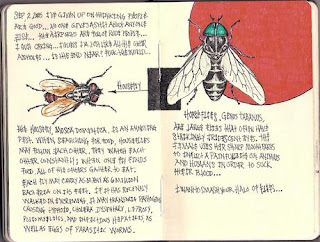 SEP 2, 2005 I'VE GIVEN UP ON
FOR GOOD... NO ONE GIVES A SHIT ABOUT ANYONE
ELSE...
HOUSEFLY
THE HOUSEFLY, MUSCA DOMESTICA, IS AN AMAZING
PEST. WHEN SEARCHING FOR FOOD, HOUSEFLIES
MAY FOLLOW EACH OTHER. THEY WATCH EACH
OTHER CONSTANTLY & WHEN ONE FLY FINDS
FOOD ALL OF THE OTHERS GATHER TO EAT.
EACH FLY MAY CARRY AS MANY AS 6 MILLION
BACTERIA ON ITS FEET. IF IT HAS RECENTLY
WALKED IN EXCREMENT, IT MAY TRANSMIT PATHOGENS
CAUSING TYPHOID, CHOLERA, DYSENTERY, LEPROSY,
POLIOMYELITIS, AND INFECTIOUS HEPATITIS, AS
WELL AS EGGS OF PARASITIC WORMS.
HORSEFLIES, GENUS TABANUS,
ARE LARGE FLIES THAT OFTEN HAVE
STRIKINGLY IRIDESCENT EYES. THE
FEMALE USES HER SHARP MOUTHPARTS
TO INFLICT A PAINFUL BITE ON ANIMALS
AND HUMANS IN ORDER TO SUCK
THEIR BLOOD...
I WANT TO SMASH YOUR HALO OF FLIES...